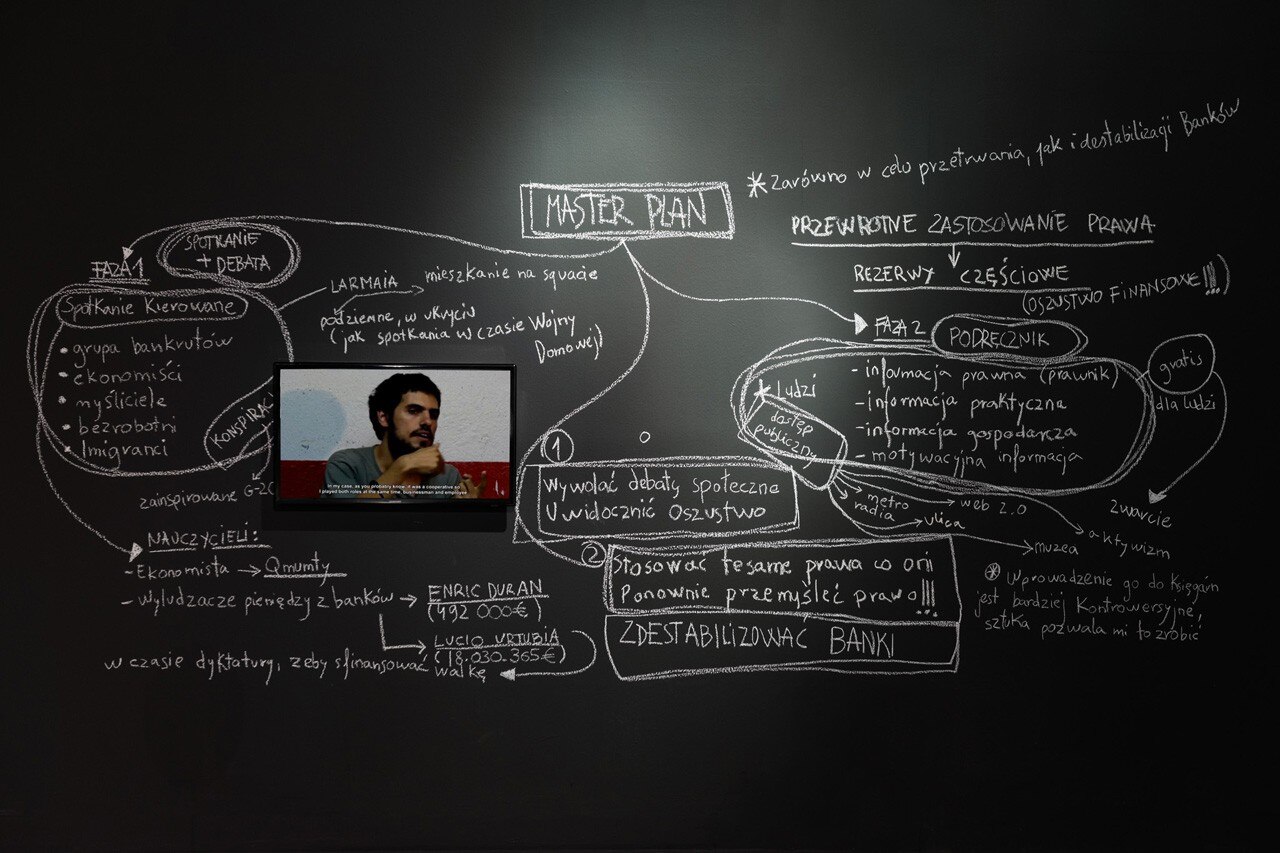 MASTER PLAN
* Zarówno w celu przetrwania, jak i destabilizacji Banków
PRZEWROTNE ZASTOSOWANIE PRAWA
REZERWY CZĘŚCIOWE
(OSZUSTWO FINANSOWE!!!)
SPOTKANIE
+ DEBATA
FAZA 1
Spotkanie Kierowane
• grupa bankrutów
• ekonomiści
• myśliciele
• bezrobotni
• Imigranci
KONSPIRAC
zainspirowane G-20
LARMAIA
mieszkanie na squacie
podziemne, w ukryciu
(jak spotkania w czasie Wojny
Domowej)
In my case, as you probably know, it was a cooperative so
I played both roles at the same time, businessman and employee
NAUCZYCIELI:
- Ekonomista → Qmunty
- wyłudzacze pieniędzy z banków →
ENRIC DURAN
(492 000€)
LUCIO URTUBIA
(18.030.365€)
w czasie dyktatury, żeby sfinansować walkę
1
Wywołać debaty społeczne
Uwidocznić Oszustwo
2
Stosować te same prawa co oni
Ponownie przemyśleć prawo!!!
ZDESTABILIZOWAĆ BANKI
FAZA 2
PODRĘCZNIK
* Ludzi
dostęp
publiczny
- informacja prawna (prawnik)
- informacja praktyczna
- informacja gospodarcza
- motywacyjna informacja
gratis
dla ludzi
zwarcie
metro
radia
ulica
web 2.0
muzea
aktywizm
* Wprowadzenie go do Księgarn
jest bardziej Kontrowersyjne,
sztuka pozwala mi to zrobić